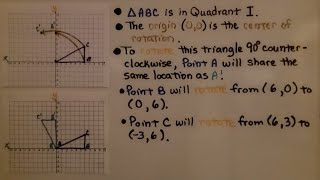 • △ABC is in Quadrant I.
• The origin (0,0) is the center of
rotation.
• To rotate this triangle 90° counter-
clockwise, Point A will share the
same location as A!
• Point B will rotate from (6,0) to
(0,6).
• Point C will rotate from (6,3) to
(-3,6).